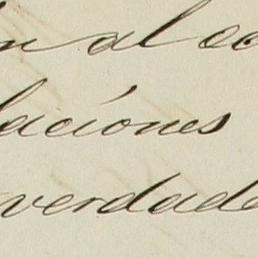 n al co
laciones
verdade